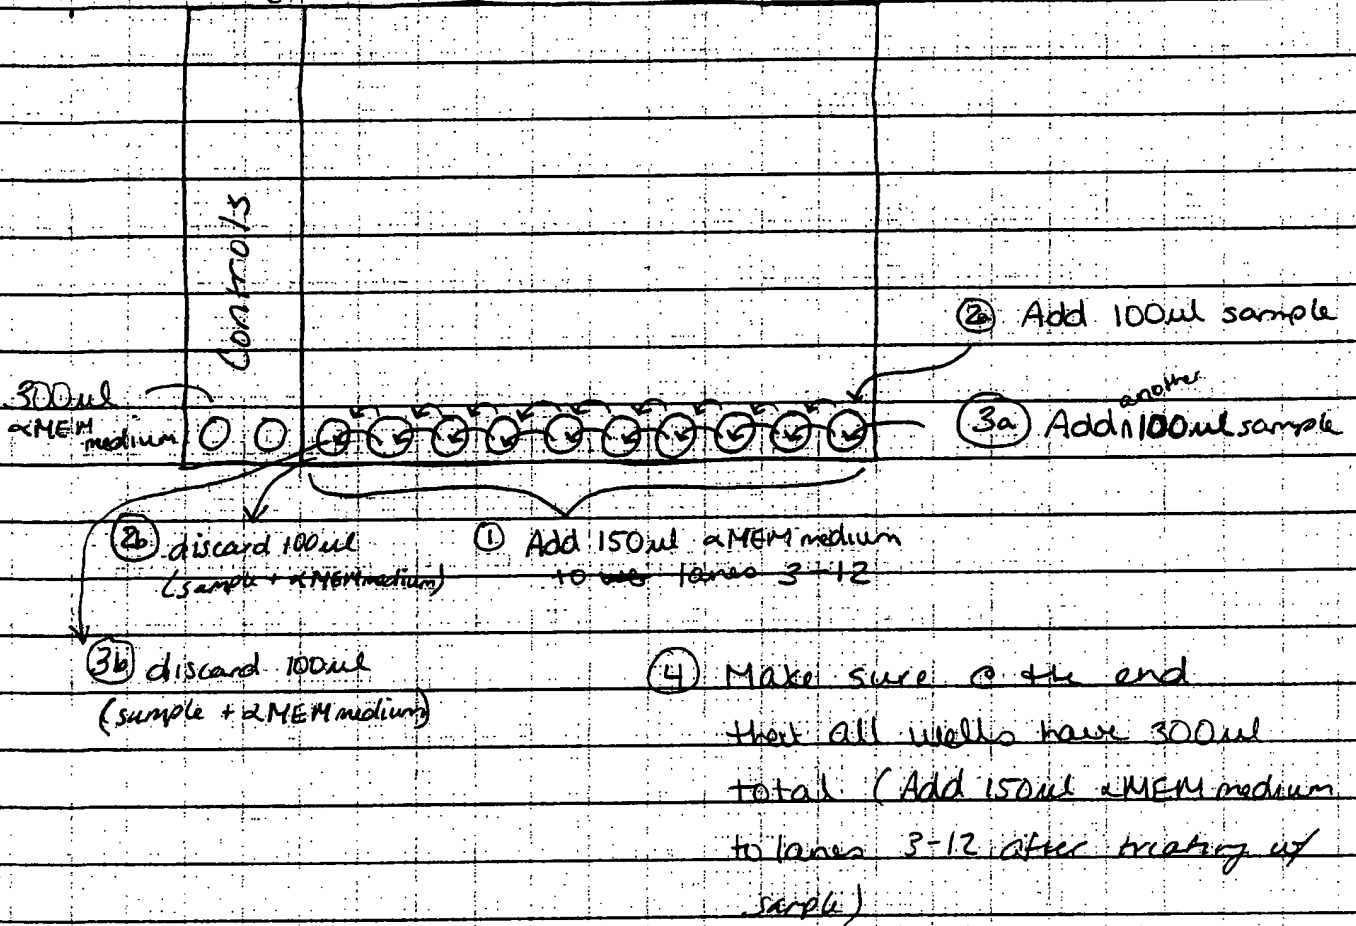 Controls
2a Add 100ul sample
300ul
αMEM
medium
another
3a Add ^ 100ul sample
2b discard 100ul
(sample + αMEM medium)
1 Add 150ul αMEM medium
to lanes 3-12
3b discard 100ul
(sample + αMEM medium)
4 Make sure @ the end
that all wells have 300ul
total (Add 150ul αMEM medium
to lanes 3-12 after treating w/
sample)